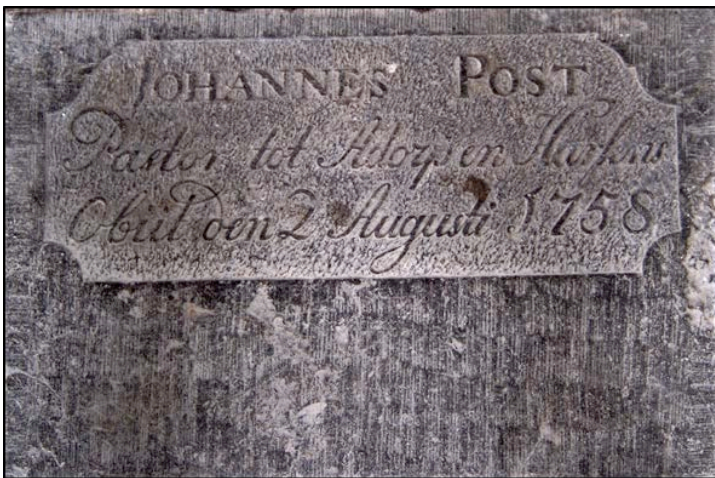 JOHANNES POST
Pastor tot Adorp en Harsens
Obiit den 2 Augusti 1758